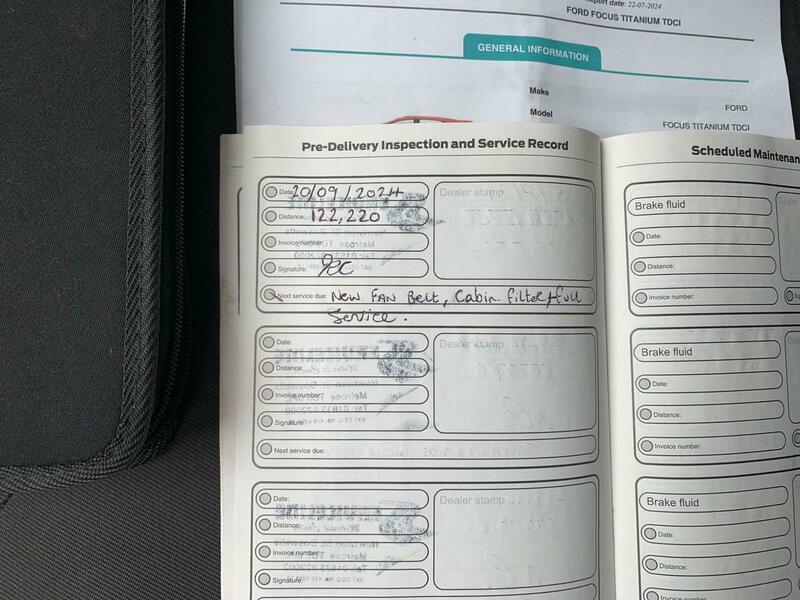 Report date: 22-07-2024
FORD FOCUS TITANIUM TDCI
GENERAL INFORMATION
Make
FORD
Model
FOCUS TITANIUM TDCI
Pre-Delivery Inspection and Service Record
Date: 20/09/2024
Dealer stamp
Distance: 122,220
Invoice number:
Signature:
Next service due: New FAN Belt, Cabin filter + full
Service.
Date:
Dealer stamp
Distance:
Invoice number:
Signature:
Next service due:
Date:
Dealer stamp
Distance:
Invoice number:
Signature:
Scheduled
Brake fluid
Date:
Distance:
Invoice number:
Brake fluid
Date:
Distance:
Invoice number:
Brake fluid
Date:
Distance:
Invoice number: